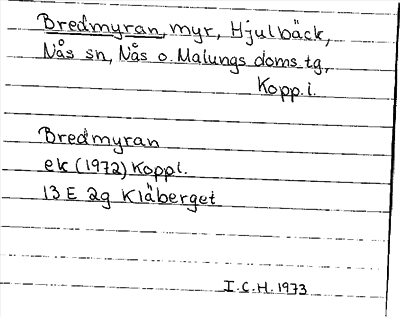 Bredmyran, myr, Hjulbäck,
Nås sn, Nås o. Malungs doms.tg,
Kopp.l.
Bredmyran
ek (1972) Koppl.
13 E 2g Kläberget
I.C.H. 1973